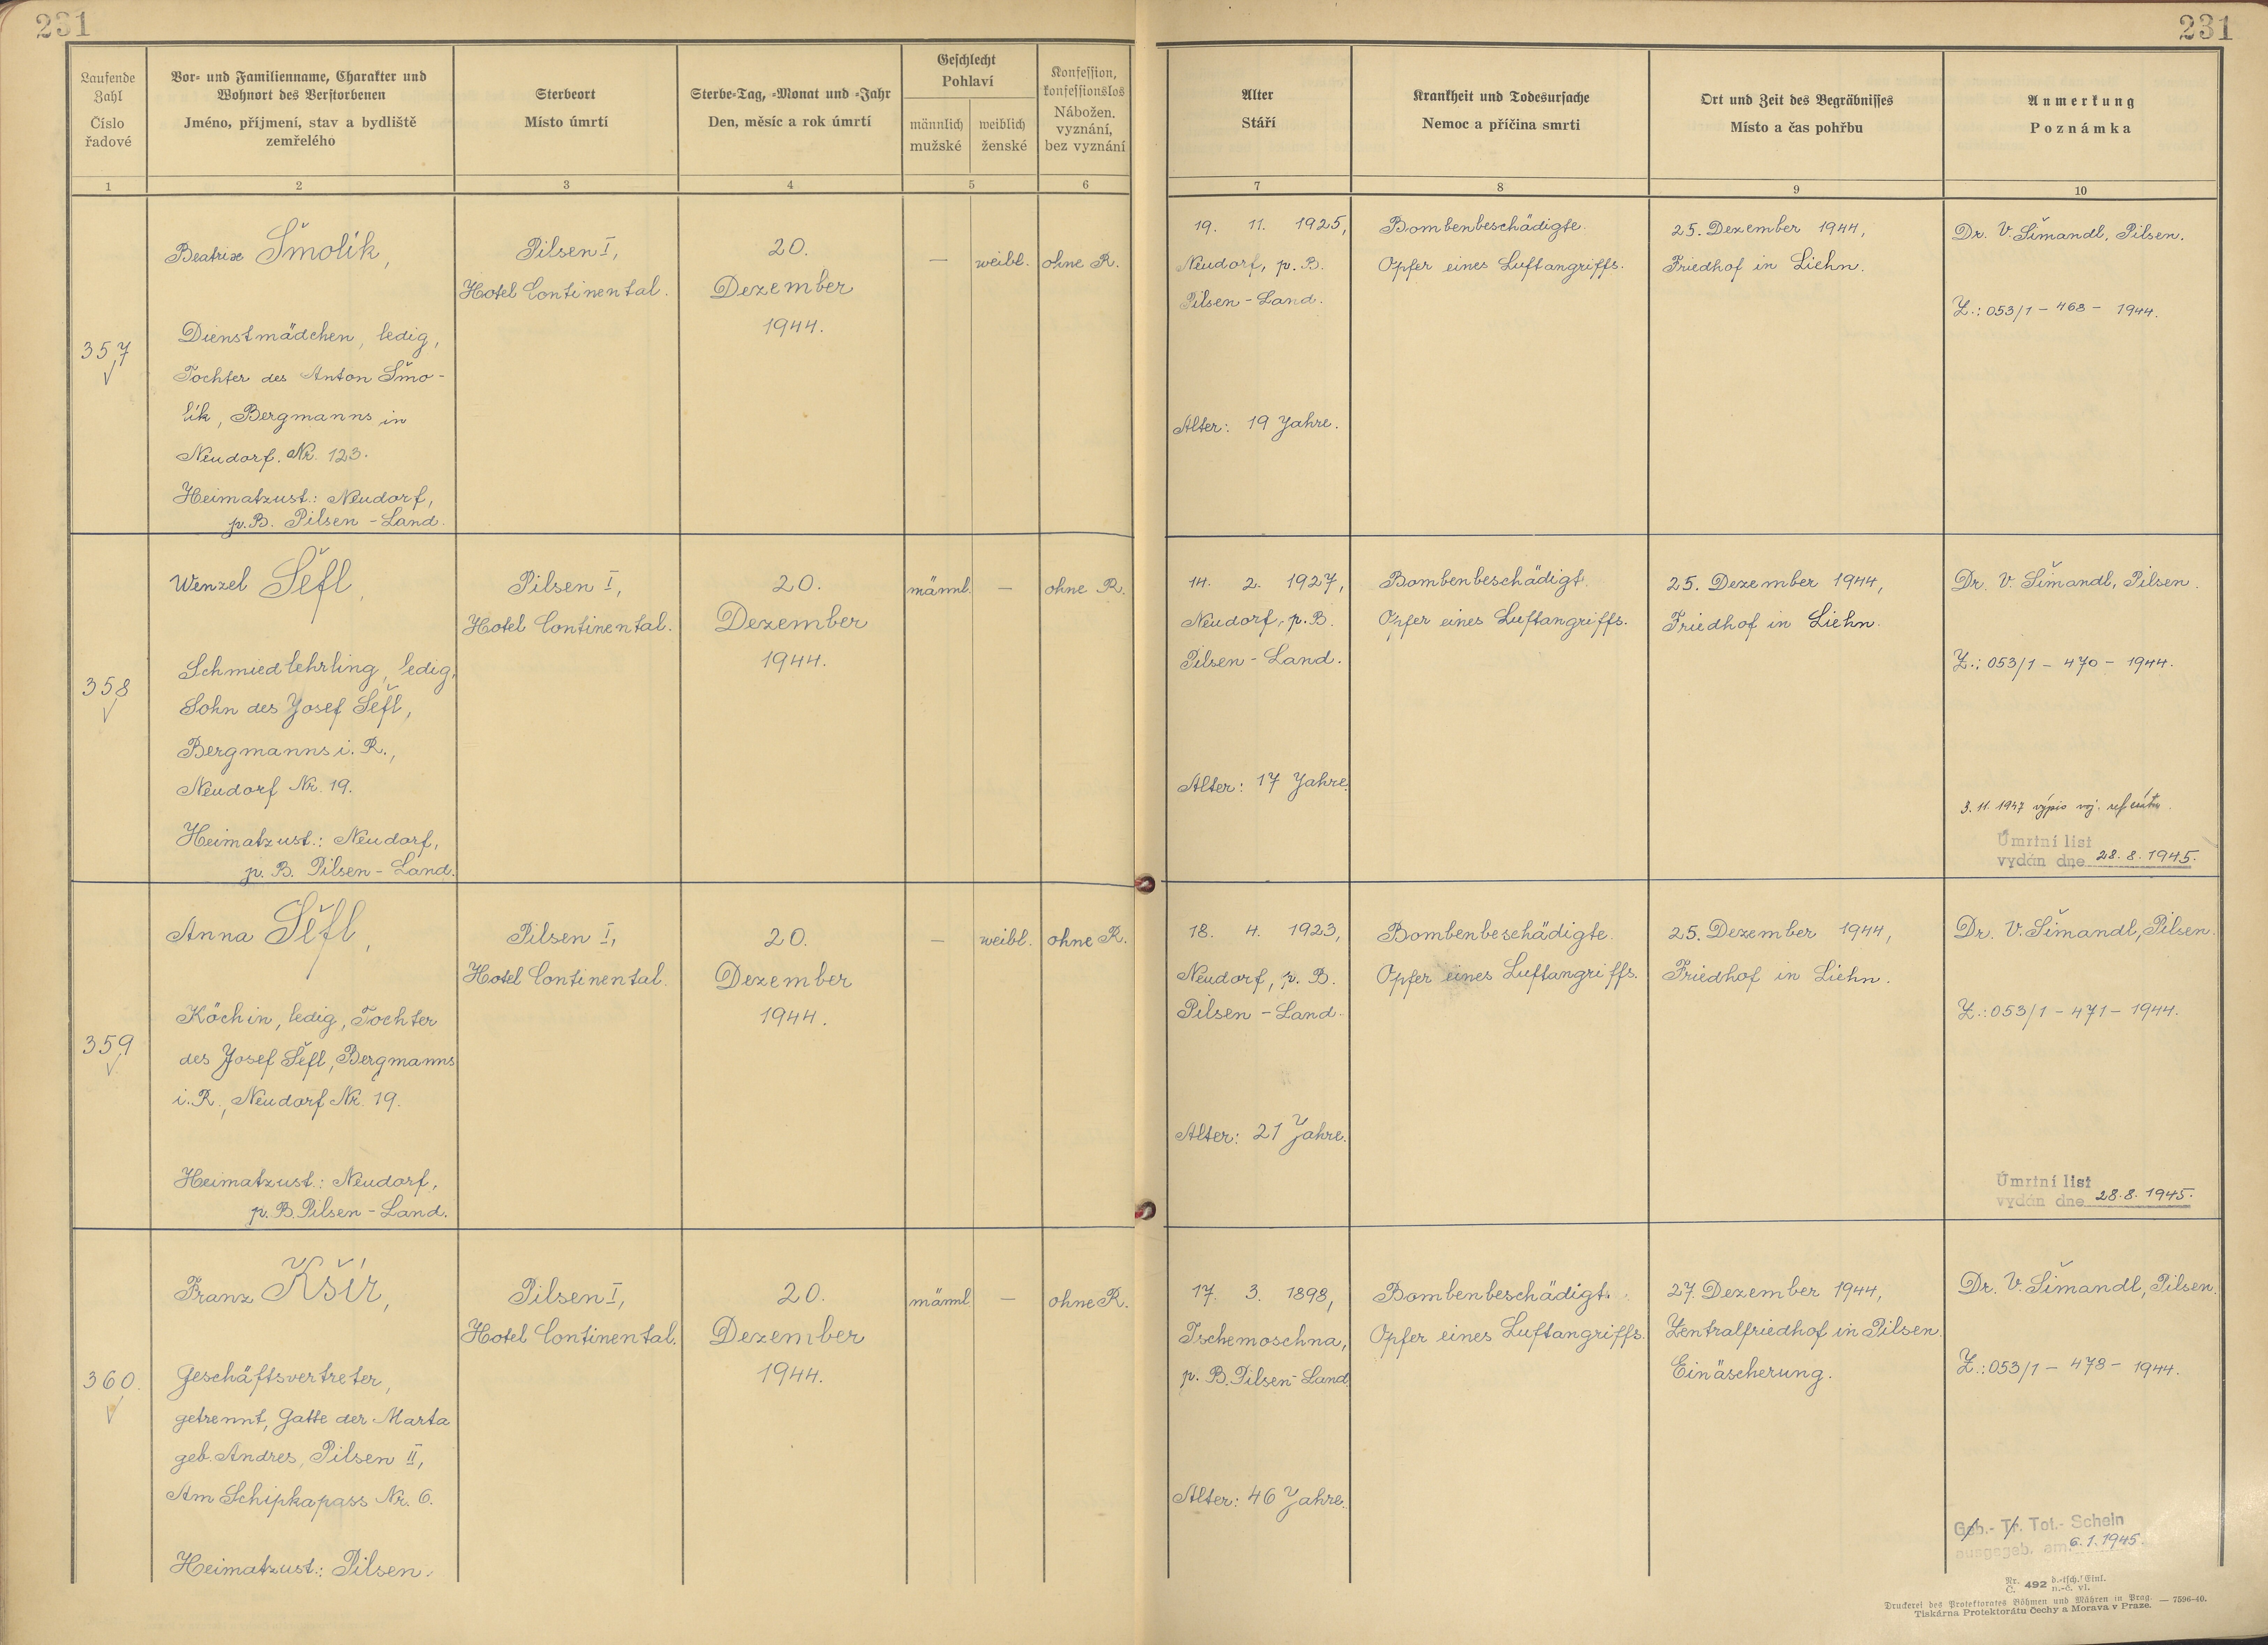 231
231
Laufende Zahl
Číslo řadové
Vor- und Familienname, Charakter und
Wohnort des Verstorbenen
Jméno, příjmení, stav a bydliště
zemřelého
Sterbeort
Místo úmrtí
Sterbe-Tag, -Monat und -Jahr
Den, měsíc a rok úmrtí
Geschlecht
Pohlaví
männlich
mužské
weiblich
ženské
Konfession,
konfessionslos
Nábožen.
vyznání,
bez vyznání
Alter
Stáří
Krankheit und Todesursache
Nemoc a příčina smrti
Ort und Zeit des Begräbnisses
Místo a čas pohřbu
Anmerkung
Poznámka
1 2 3 4 5 6 7 8 9 10
357
Beatrix Šmolík,
Dienstmädchen, ledig,
Tochter des Anton Šmo-
lík, Bergmanns in
Neudorf. Nr. 123.
Heimatzust.: Neudorf,
p. B. Pilsen - Land.
Pilsen I,
Hotel Continental.
20.
Dezember
1944.
—
weibl.
ohne R.
19. 11. 1925,
Neudorf, p. B.
Pilsen - Land.
Alter: 19 Jahre.
Bombenbeschädigte.
Opfer eines Luftangriffs.
25. Dezember 1944,
Friedhof in Liehn.
Dr. V. Šimandl, Pilsen.
Z.: 053/1 - 468 - 1944.
358
Wenzel Šefl,
Schmiedlehrling, ledig,
Sohn des Josef Šefl,
Bergmanns i. R.,
Neudorf Nr. 19.
Heimatzust.: Neudorf,
p. B. Pilsen - Land.
Pilsen I,
Hotel Continental.
20.
Dezember
1944.
männl.
—
ohne R.
14. 2. 1927,
Neudorf, p. B.
Pilsen - Land.
Alter: 17 Jahre.
Bombenbeschädigt.
Opfer eines Luftangriffs.
25. Dezember 1944,
Friedhof in Liehn.
Dr. V. Šimandl, Pilsen.
Z.: 053/1 - 470 - 1944.
3. 11. 1947 výpis voj.
Úmrtní list
vydán dne 28. 8. 1945.
359
Anna Šefl,
Köchin, ledig, Tochter
des Josef Šefl, Bergmanns
i. R., Neudorf Nr. 19.
Heimatzust.: Neudorf,
p. B. Pilsen - Land.
Pilsen I,
Hotel Continental.
20.
Dezember
1944.
—
weibl.
ohne R.
18. 4. 1923,
Neudorf, p. B.
Pilsen - Land.
Alter: 21 Jahre.
Bombenbeschädigte.
Opfer eines Luftangriffs.
25. Dezember 1944,
Friedhof in Liehn.
Dr. V. Šimandl, Pilsen.
Z.: 053/1 - 471 - 1944.
Úmrtní list
vydán dne 28. 8. 1945.
360.
Franz Kšír,
Geschäftsvertreter,
getrennt, Gatte der Marta
geb. Andres, Pilsen II,
Am Schipkapass Nr. 6.
Heimatzust.: Pilsen.
Pilsen I,
Hotel Continental.
20.
Dezember
1944.
männl.
—
ohne R.
17. 3. 1898,
Tschemoschna,
p. B. Pilsen - Land
Alter: 46 Jahre.
Bombenbeschädigt.
Opfer eines Luftangriffs.
27. Dezember 1944,
Zentralfriedhof in Pilsen.
Einäscherung.
Dr. V. Šimandl, Pilsen.
Z.: 053/1 - 478 - 1944.
Geb.- Tr. Tot.- Schein
ausgegeb. am 6. 1. 1945.
Nr. Č. 492 d.-tsch. Einl. n.-č. vl.
Druckerei des Protektorates Böhmen und Mähren in Prag. — 7596-40.
Tiskárna Protektorátu Čechy a Morava v Praze.